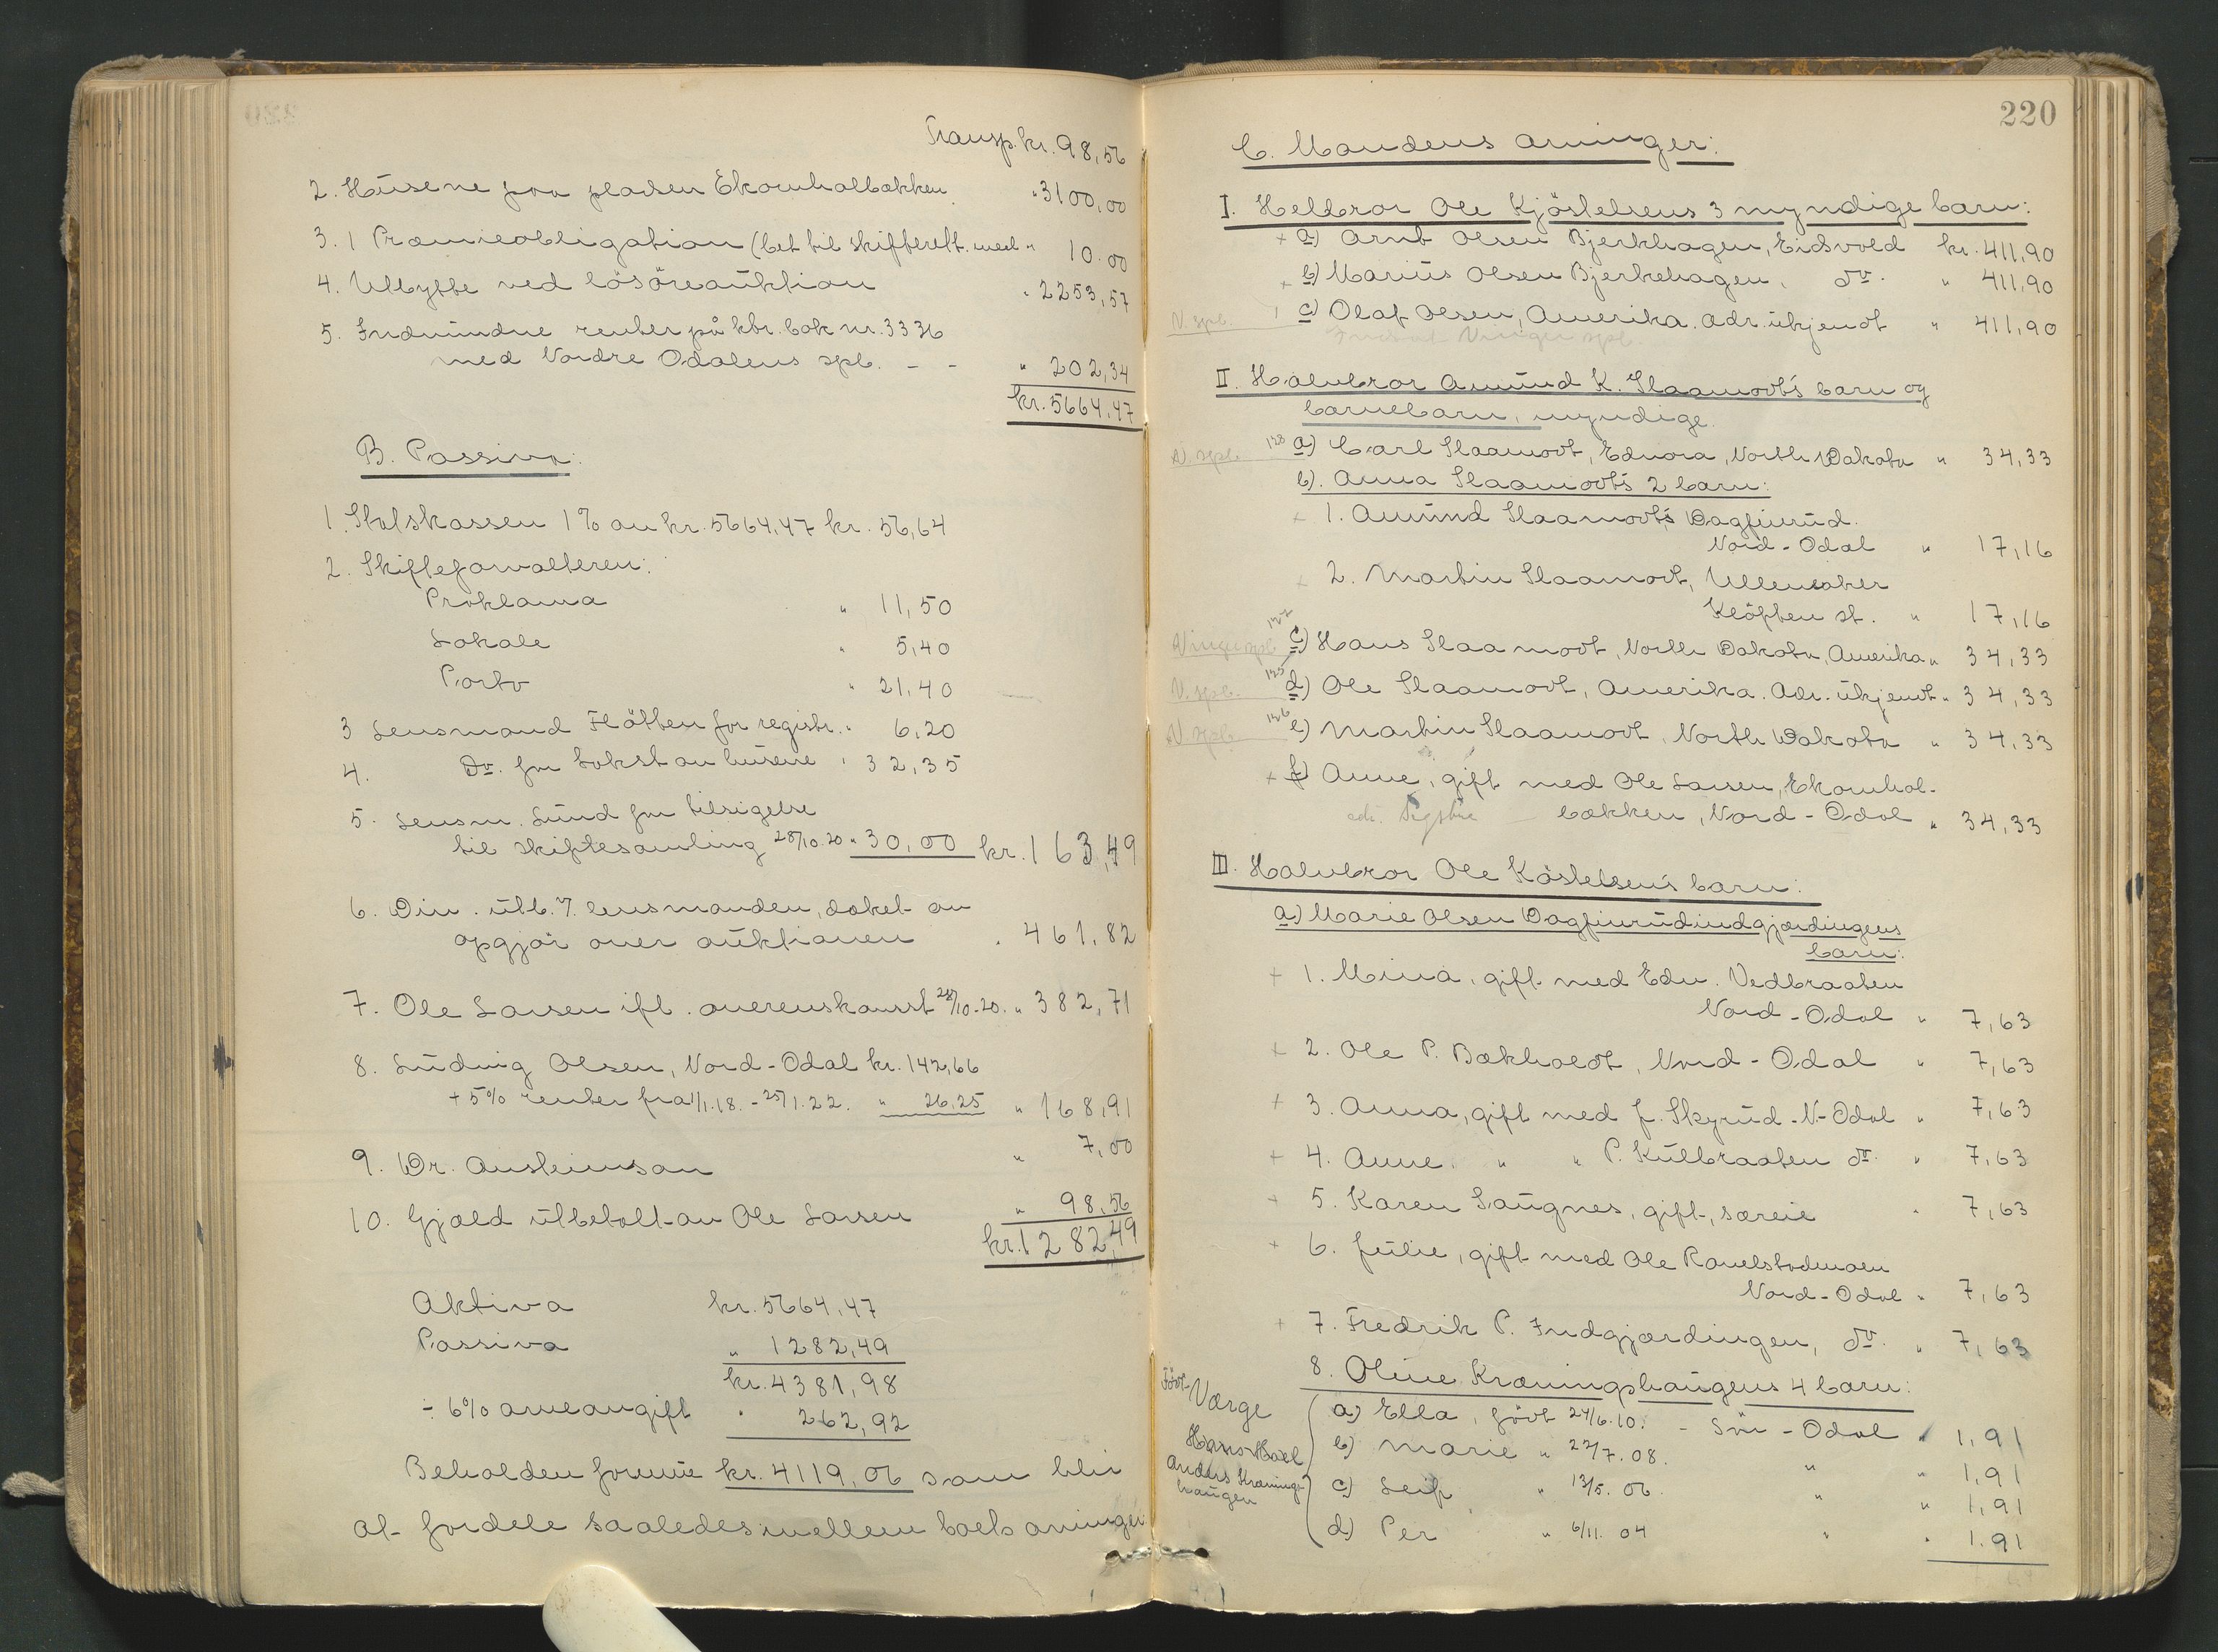 Transp. kr. 98,56
2. Husene paa pladsen Ekornholbækken " 3100,00
3. 1 Præmieobligation (bet til skifterett. med " 10.00
4. Utbytte ved lösöreauktion " 2253,57
5. Indvundne renter på kbr. bok nr. 3336
med Nordre Odalens spb. - - " 202,34
kr. 5664,47
B. Passiva:
1. Statskassen 1% av kr. 5664,47 kr. 56,64
2. Skifteforvalteren:
Proklama " 11,50
Lokale " 5,40
Porto " 21,40
3 Lensmand Flötten for registr. " 6,20
4. Do. for takst av husene " 32,35
5. Lensm. Lund for tilsigelse
til skiftesamling 28/10.20 " 30,00 kr. 163,49
6. Div. utb. t. lensmanden, dækket av
opgjör over auktionen " 461,82
7. Ole Larsen ifl. overenskomst 28/10.20. " 382,71
8. Ludvig Olsen, Nord-Odal kr. 142,66
+ 5% renter fra 1/1.18. - 25/1.22. " 26,25 " 168,91
9. Dr. Austeimsan " 7,00
10. Gjæld utbetalt av Ole Larsen " 98,56
kr. 1282,49
Aktiva kr. 5664,47
Passiva " 1282,49
kr. 4381,98
÷ 6% arveavgift " 262,92
Beholden formue kr. 4119,06 som blir
at fordele saaledes mellem boets arvinger
220
C. Mandens arvinger:
I. Helbror Ole Kjöstelsens 3 myndige barn:
+ a) Arnt Olsen Bjerkhagen, Eidsvold kr. 411,90
+ b) Marius Olsen Bjerkehagen, do. " 411,90
N. spb. c) Olaf Olsen, Amerika. Adr. ukjendt " 411,90
Indsat Vinger spb.
II. Halvbror Amund K. Slaamoot's barn og
barnebarn, myndige.
N. spb. 128 a) Carl Slaamoot, Ednora, North Dakota " 34,33
b). Anna Slaamoot's 2 barn:
+ 1. Amund Slaamoot's Dagfinrud.
Nord-Odal " 17,16
+ 2. Martin Slaamoot, Ullensaker
Klöften st. " 17,16
Vinger spb 127 c) Hans Slaamoot, North Dakota, Amerika " 34,33
V. spb. 125 d) Ole Slaamoot, Amerika. Adr. ukjendt " 34,33
N. spb. 126 e) Martin Slaamoot, North Dakota " 34,33
+ f) Anne, gift med Ole Larsen, Ekornhol-
adr. Sigstue bækken, Nord-Odal " 34,33
III. Halvbror Ole Köstelsen's barn:
a) Marie Olsen Dagfinrudindgjærdingens
barn:
+ 1. Mina, gift med Edv. Vedbraaten
Nord-Odal " 7,63
+ 2. Ole P. Bækholdt, Nord-Odal " 7,63
+ 3. Anna, gift med J. Skyrud - N-Odal " 7,63
+ 4. Anne " " P. Kulbraaten do. " 7,63
+ 5. Karen Saugnes, gift, særeie " 7,63
+ 6. Julie, gift med Ole Rovelstadmoen
Nord-Odal " 7,63
+ 7. Fredrik P. Indgjærdingen, do. " 7,63
8. Oline Kræmingshaugens 4 barn:
Födt Værge
a) Ella, födt 24/6.10. - Sör-Odal " 1,91
Hans Moel
b) Marie " 22/7.08. " " 1,91
Anders Kræmings-
haugen
c) Leif " 13/5.06. " " 1,91
d) Per " 6/11.04 " " 1,91